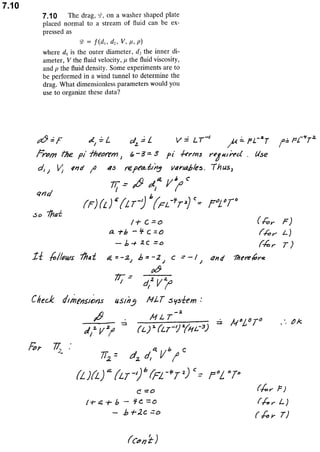 7.10
7.10 The drag, 𝒟, on a washer shaped plate
placed normal to a stream of fluid can be ex-
pressed as
𝒟 = f(d₁, d₂, V, μ, ρ)
where d₁ is the outer diameter, d₂ the inner di-
ameter, V the fluid velocity, μ the fluid viscosity,
and ρ the fluid density. Some experiments are to
be performed in a wind tunnel to determine the
drag. What dimensionless parameters would you
use to organize these data?
𝒟 ≐ F d₁ ≐ L d₂ ≐ L V ≐ LT⁻¹ μ ≐ FL⁻²T ρ ≐ FL⁻⁴T²
From the pi theorem, 6-3 = 3 pi terms required. Use
d₁, V, and ρ as repeating variables. Thus,
π₁ = 𝒟 d₁ᵃ Vᵇ ρᶜ
and
(F)(L)ᵃ(LT⁻¹)ᵇ(FL⁻⁴T²)ᶜ = F⁰L⁰T⁰
so that
1 + c = 0 (for F)
a + b - 4c = 0 (for L)
-b + 2c = 0 (for T)
It follows that a = -2, b = -2, c = -1, and therefore
π₁ = 𝒟 / d₁²V²ρ
Check dimensions using MLT system:
𝒟 / d₁²V²ρ ≐ MLT⁻² / (L)²(LT⁻¹)²(ML⁻³) ≐ M⁰L⁰T⁰ ∴ ok
For π₂ :
π₂ = d₂ d₁ᵃ Vᵇ ρᶜ
(L)(L)ᵃ(LT⁻¹)ᵇ(FL⁻⁴T²)ᶜ = F⁰L⁰T⁰
c = 0 (for F)
1 + a + b - 4c = 0 (for L)
-b + 2c = 0 (for T)
(con't)